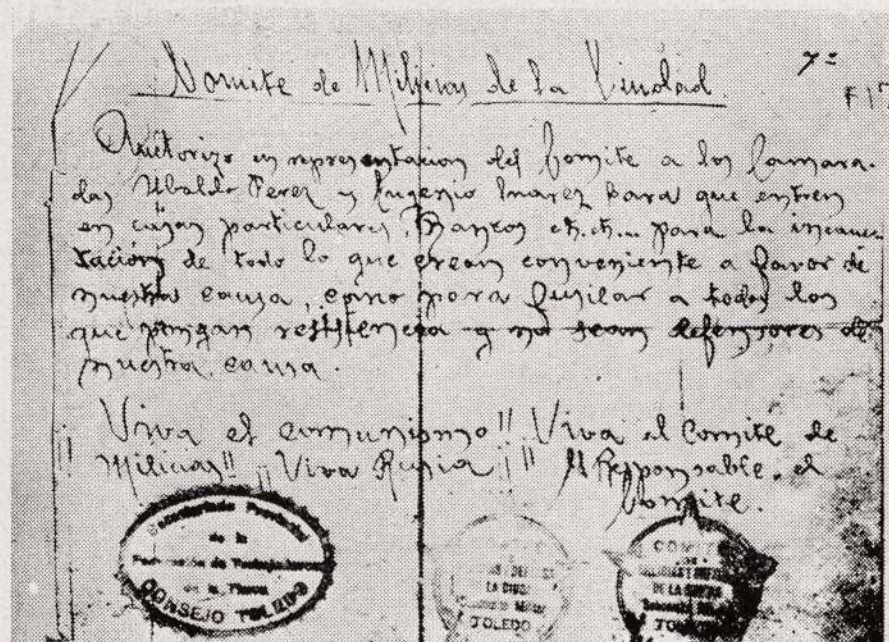 Comite de Milicias de la Ciudad.
7=
Autorizo en representacion del Comite a los Camara-
das Ubaldo Perez y Eugenio Suarez para que entren
en cajas particulares, Bancos et. et... para la incau-
tación de todo lo que crean conveniente a favor de
nuestra causa, como para fusilar a todos los
que pongan resistencia y no sean defensores de
nuestra causa.
Viva el comunismo!! Viva el Comité de
!! Milicias!! ¡¡Viva Rusia!! El Responsable. el
Comite.
Secretariado Provincial
de la
Federación de Trabajadores
de la Tierra
CONSEJO TOLEDO
LA CIUDAD
TOLEDO
COMITE
DE
MILICIAS Y
DE LA
TOLEDO